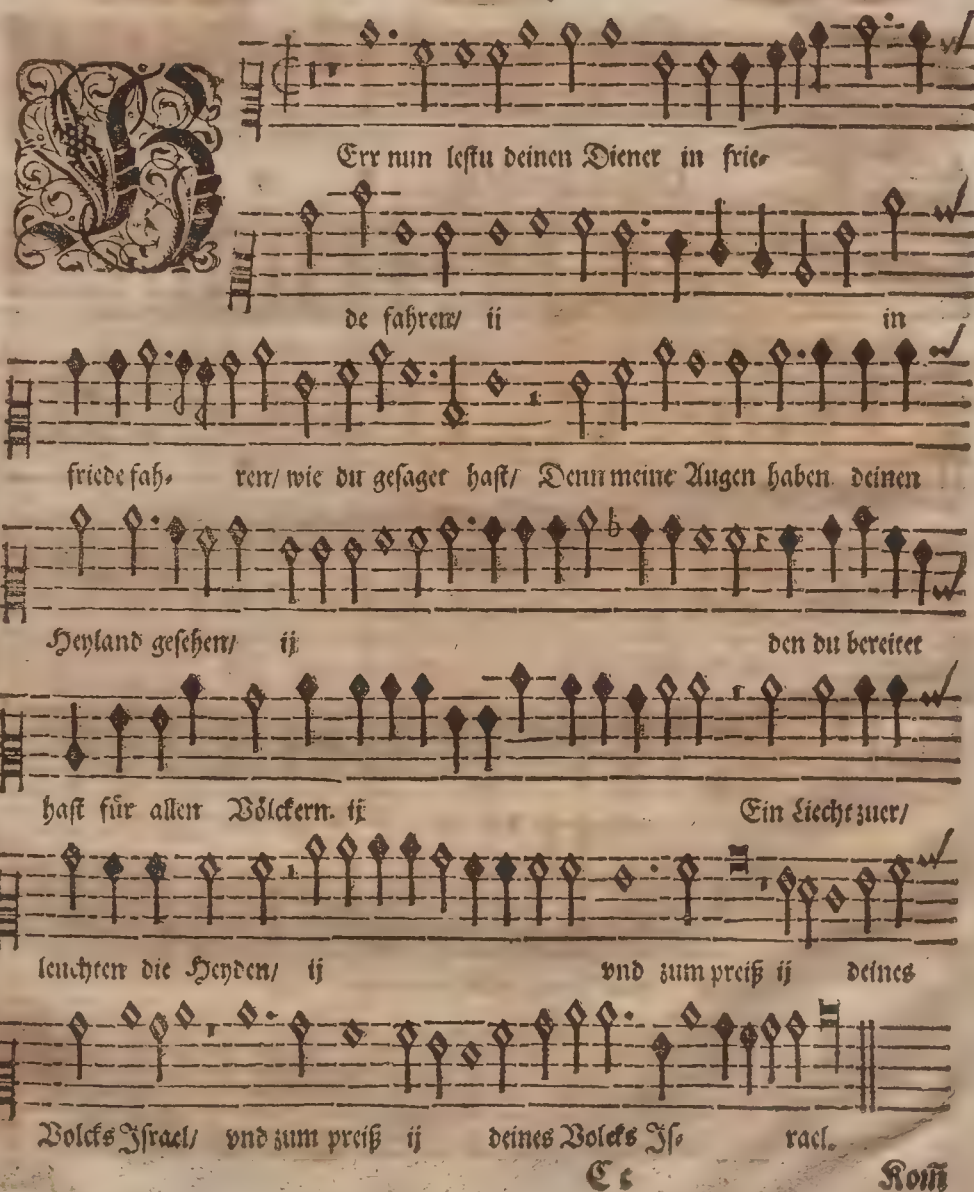 HErr nun lestu deinen Diener in frie⸗
de fahren/ ij in
friede fah⸗ ren/ wie du gesaget hast/ Denn meine Augen haben deinen
Heyland gesehen/ ij den du bereitet
hast für allen Völckern. ij Ein Liecht zuer/
leuchten die Heyden/ ij vnd zum preiß ij deines
Volcks Jsrael/ vnd zum preiß ij deines Volcks Js⸗ rael.
C c Kom̃